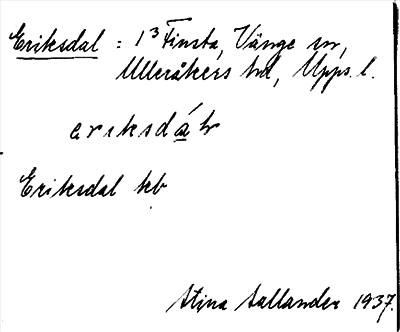 Eriksdal : 1³ Finsta, Vänge sn,
Ulleråkers hd, Upps. l.
Eriksdal hb
Stina Sallander 1937.